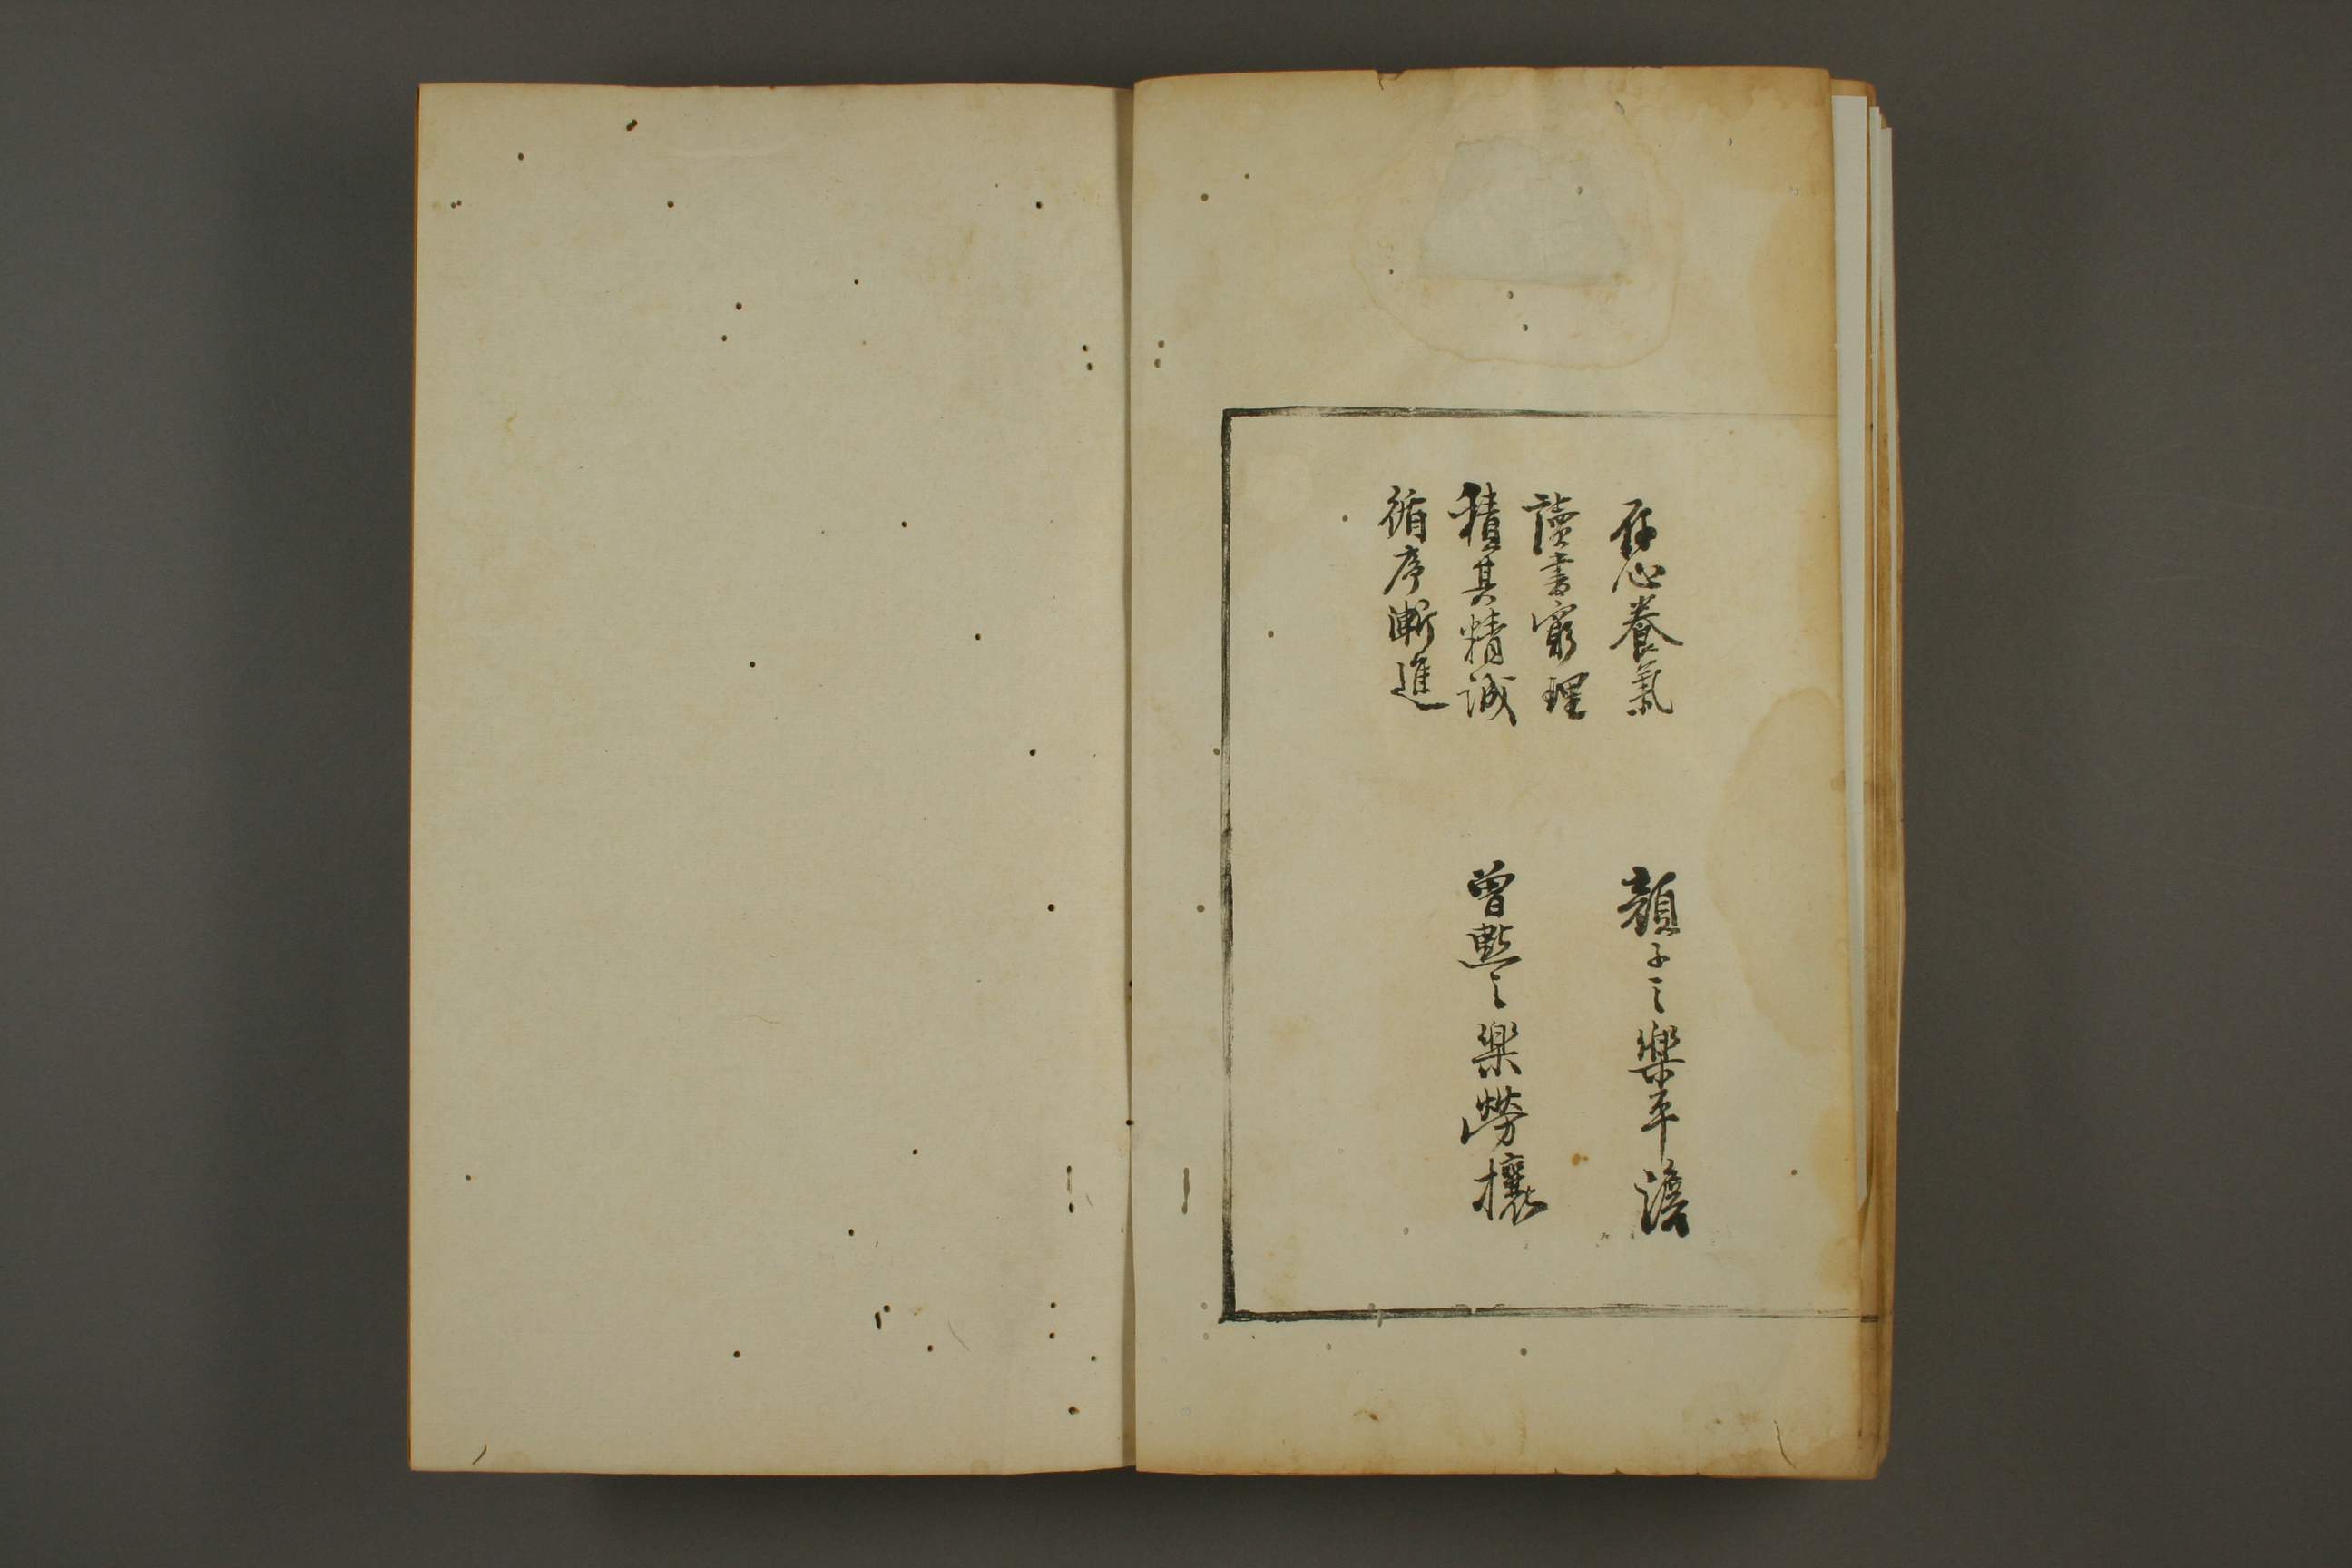 存心養氣
讀書窮理
積其精誠
循序漸進
顏子之樂平澹
曾點之樂勞攘